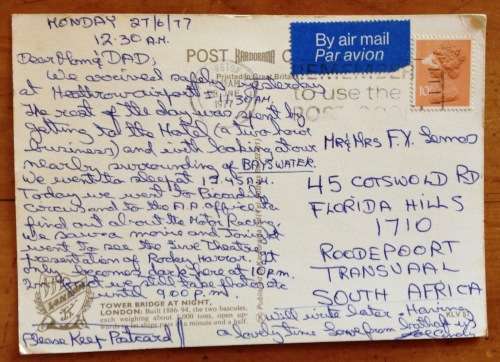 MONDAY 27/6/77
12.30 A.M.
Dear Mom & DAD,
We arrived safely yesterday
at Heathrow airport 11.30AM.
The rest of the day was spent by
getting to the Hotel (a two hour
business) and with looking at our
nearby surrounding of BAYSWATER.
We went to sleep at 12.45 P.M.
Today we went to Piccadilly
circus and to the office to
find out about the Motor Racing.
We saw a movie and tonight
went to see the live Theatre
presentation of Rocky Horror. It
only becomes dark here at 10 p.m.
In fact we still take photo's
until 9.00 P.M.
Please Keep Postcard!
POST
BY AIR MAIL
Par avion
Printed in Great Britain
REMEMBER
to use the
10P
Mr & Mrs F.X. Lemos
45 COTSWOLD RD
FLORIDA HILLS
1710
ROODEPOORT
TRANSVAAL
SOUTH AFRICA
TOWER BRIDGE AT NIGHT,
LONDON: Built 1886-94, the two bascules,
each weighing about 1,000 tons, open
in a minute and a half
will write later. Having
a lovely time. Love from